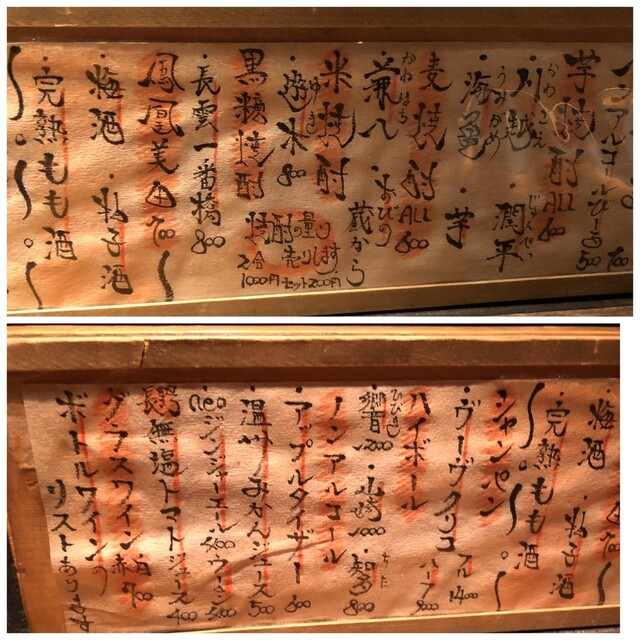 ノンアルコールビール 500
芋焼酎 ALL 600
・川越 ・潤平
かわごえ じゅんぺい
・海亀 ・芋
うみがめ
麦焼酎 ALL 600
・兼八 ・おびの蔵から
かねはち
米焼酎
・遊木 800
ゆき
黒糖焼酎
・長雲一番橋 800
焼酎の量り売りします
2合1000円 セット200円
鳳凰美田 700
・梅酒 ・柚子酒
・完熟もも酒
・梅酒 ・柚子酒
・完熟もも酒
シャンパン
・ヴーヴクリコ フル14000 ハーフ8000
ハイボール
・響 2000 ・山崎 1000 ・知多 800
ひびき ちた
ノンアルコール
・アップルタイザー 600
・温州みかんジュース 500
・neoジンジャーエール
・無塩トマトジュース 400
グラスワイン 白 赤 700
ボトルワインの
リストあります